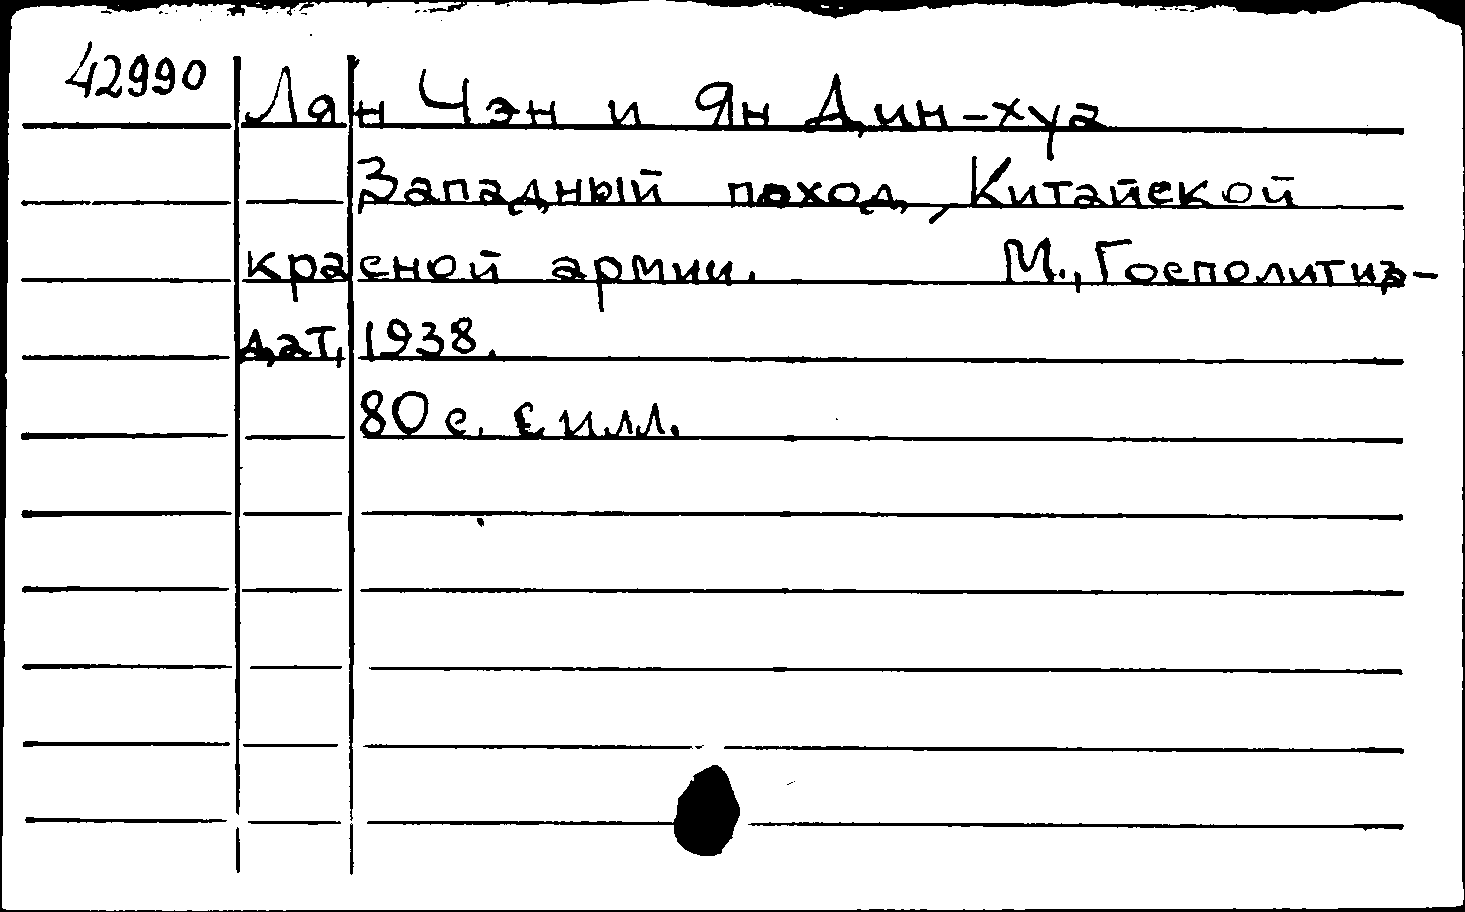 42990 Лян Чэн и Ян Дин-хуа
Западный поход, Китайской
красной армии. М., Госполитиз-
дат, 1938.
80 с. с илл.